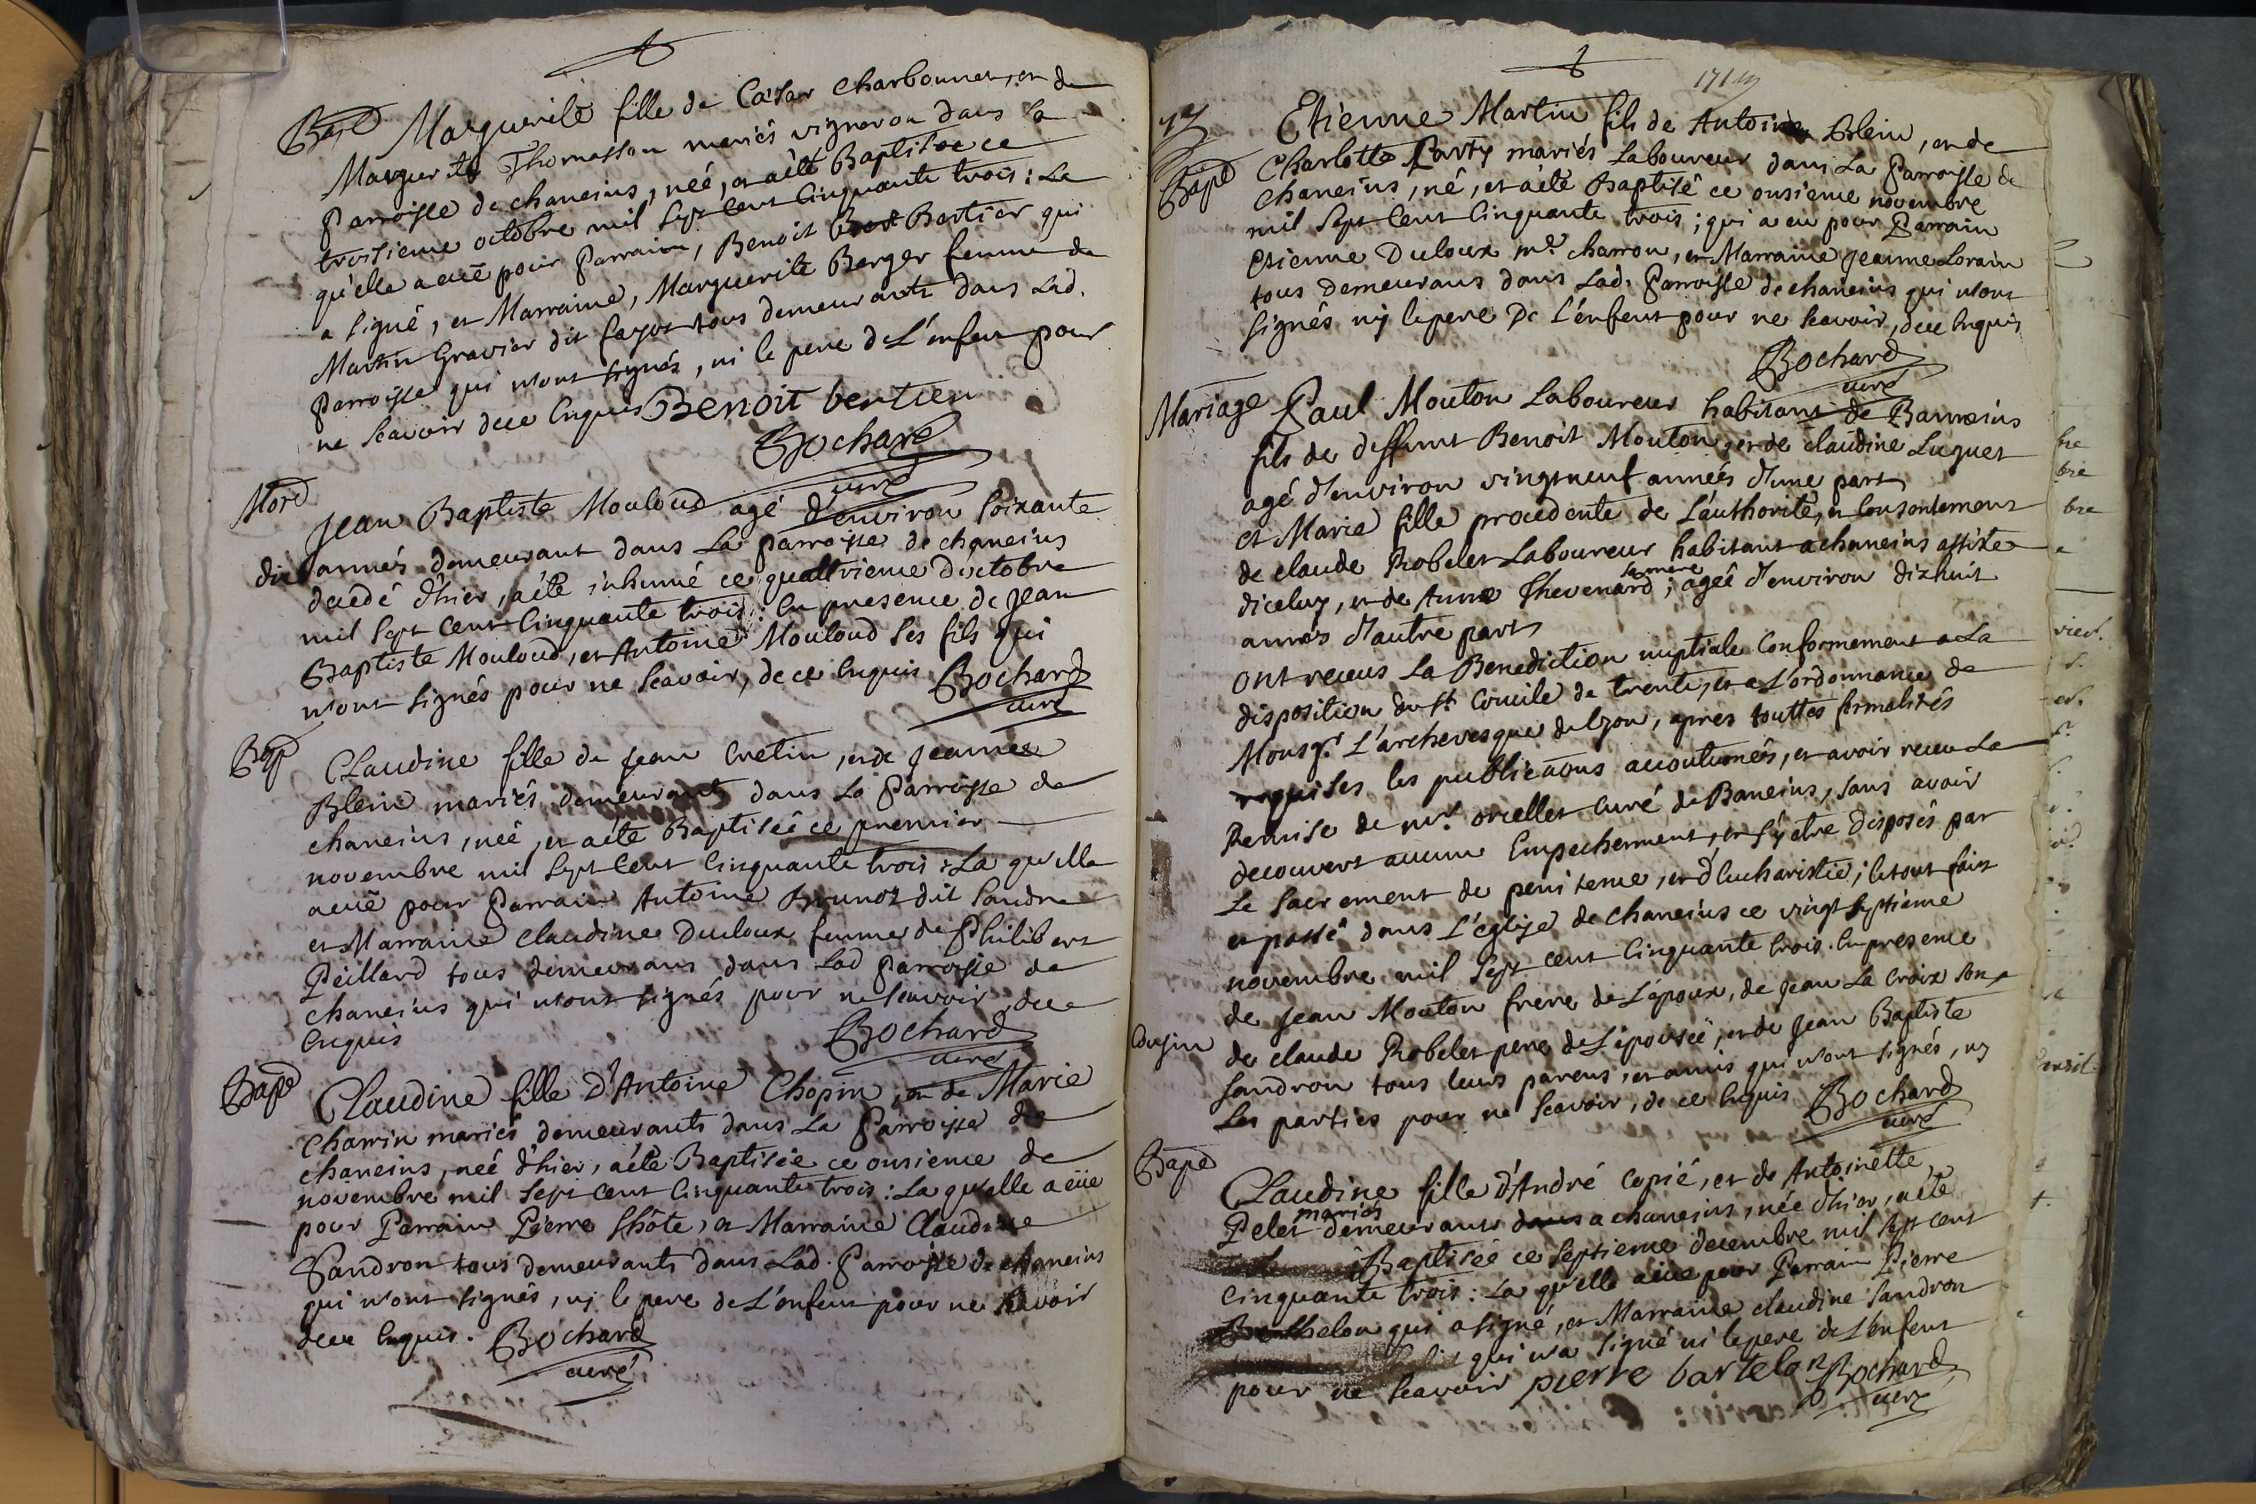 Bapt Marguerite fille de Cœsar charbonnet, et de
Marguerite Thomasson mariés vigneron dans la
Parroisse de chaneins, neé, et aété Baptiseé ce
troisieme octobre mil sept Cent Cinquante trois : La
qu'elle a euë pour Parrain, Benoit Bertier qui
a signé, et Marraine, Marguerite Berger femme de
Martin Gravier dit fayot tous demeurants dans Lad.
Parroisse qui n'ont signés, ni le pere de L'enfent pour
ne scavoir dece Enquis Benoit bertier
Bochard
curé
Mort
Jean Baptiste Mouloud agé d'environ Soixante
dix annés demeurant dans La parroisse de chaneins
decedé d'hier, aété inhumé ce quattrieme D'octobre
mil sept Cent Cinquante trois : En presence de Jean
Baptiste Mouloud, et Antoine Mouloud ses fils qui
n'ont signés pour ne scavoir, de ce Enquis Bochard
curé
Bap
CLaudine fille de Jean Cretin, et de Jeanne
Blein mariés demeurants dans La Parroisse de
chaneins, neé, et aété Baptiseé ce premier
novembre mil sept Cent Cinquante trois : La qu'elle
aeuë pour Parrain Antoine Brunot dit Sandre
et Marraine Claudine Duloux femme de Philibert
Peillard tous demeurans dans Lad Parroisse de
chaneins qui n'ont signés pour ne scavoir, dece
Enquis Bochard
curé
Bapt
CLaudine fille D'Antoine Chopin, et de Marie
Charrin mariés demeurants dans La Parroisse de
chaneins, neé d'hier, aété Baptiseé ce onsieme de
novembre mil sept Cent Cinquante trois : La qu'elle a eüe
pour Parrain Pierre Lhôte, et Marraine Claudine
Sandron tous demeurants dans Lad. Parroisse de chaneins
qui n'ont signés, ny le pere de L'enfent pour ne scavoir
dece Enquis. Bochard
curé
Etienne Martin fils de Antoine Blein, et de
Bapt Charlotte Party mariés Laboureur dans La Parroisse de
chaneins, né, et aété Baptisé ce onsieme novembre
mil sept Cent Cinquante trois ; qui a eu pour Parrain
etienne Duloux me charron, et Marraine Jeanne Lorain
tous Demeurans dans Lad. Parroisse de chaneins qui n'ont
signés ny le pere De L'enfent pour ne scavoir, dece Enquis
Bochard
curé
Mariage Paul Mouton Laboureur habitant de Banneins
fils de deffunt Benoit Mouton, et de claudine Luquet
agé d'environ vingtneuf années d'une part,
et Marie fille procedente de L'authorité, et Consentement
de claude Robelet Laboureur habitant a chaneins assisteé
diceluy, et de Anne Thevenard sa mere ; ageé d'environ dixhuit
annés d'autre part
ont receus La Benediction nuptiale Conformement a La
disposition du St Concile de trente, et a L'ordonnance de
Monsgr L'archevesque de Lyon, apres touttes formalités
requises les publicaons accoutumeés, et avoir receu La
Remise de mr orcellet Curé de Baneins, sans avoir
decouvert aucun Empechement, et s'y etre disposés par
Le Sacrement de penitence, et d'Eucharistie ; le tout fait
et passé dans L'église de Chaneins ce vingt septieme
novembre mil Sept cent Cinquante trois. En presence
de Jean Mouton frere de L'époux, de Jean La Croix son
Cousin de claude Robelet pere de L'épouseé, et de Jean Baptiste
Sandron tous leurs parens, et amis qui n'ont signés, ny
Les parties pour ne Scavoir, de ce Enquis Bochard
curé
Bapt
CLaudine fille d'André Copié, et de Antoinette
Pelet mariés demeurants a chaneins, née d'hier, aété
Baptiseé ce Septieme decembre mil sept cent
Cinquante trois : La qu'elle aeue pour Parrain Pierre
Berthelon qui a signé, et Marraine claudine Sandron
qui n'a signé ni le pere de L'enfent
pour ne scavoir pierre bartelon Bochard
curé